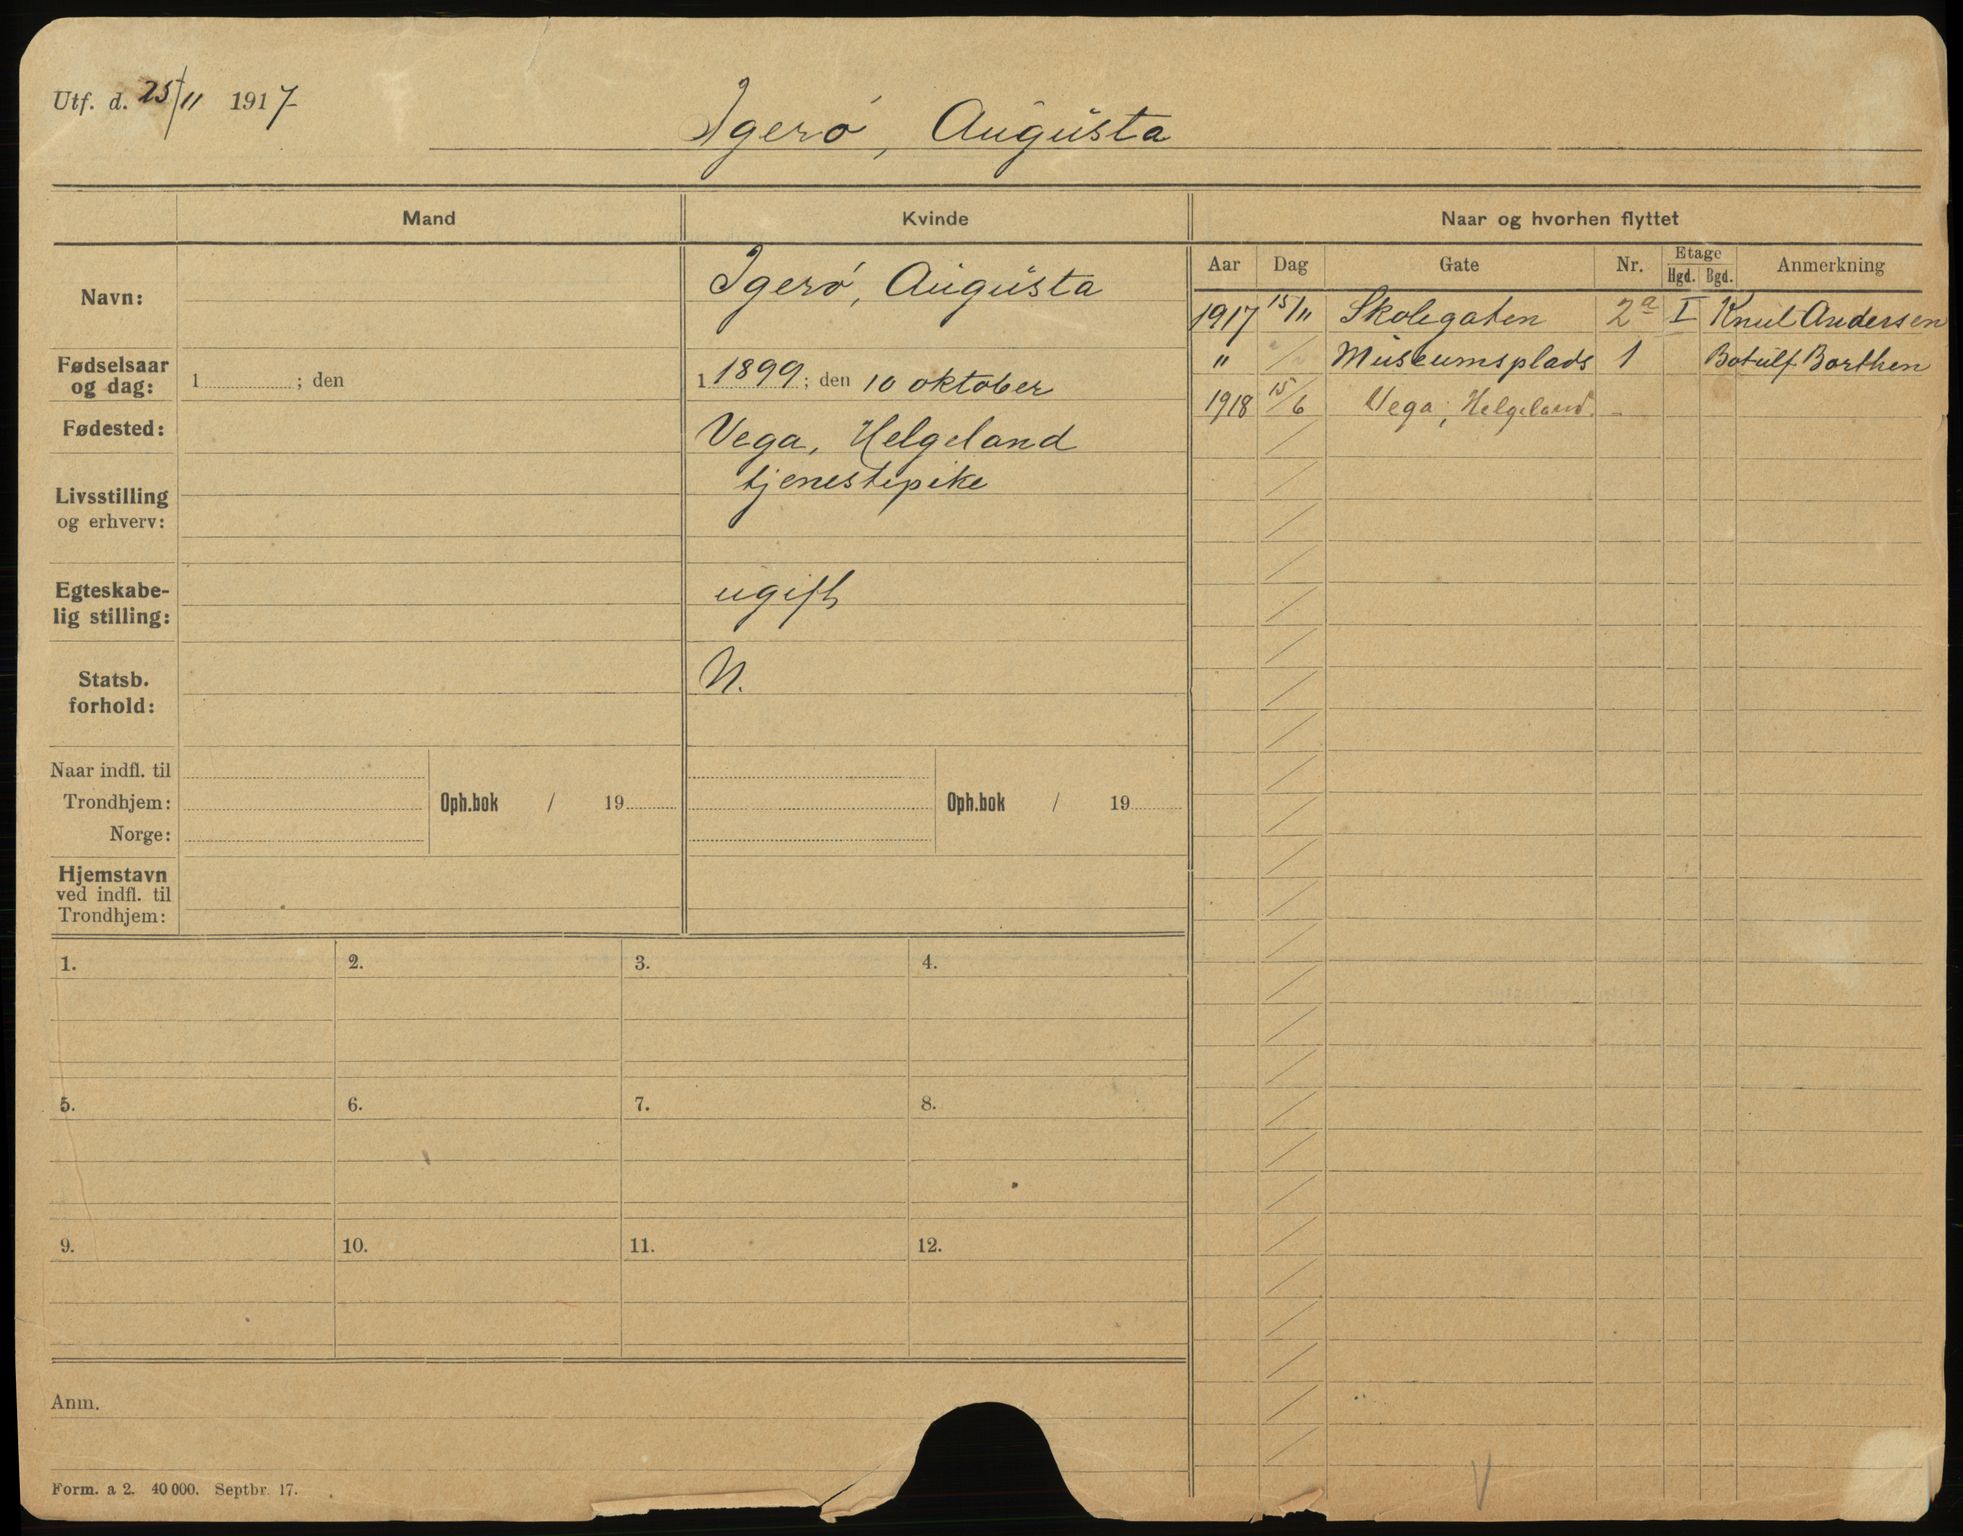 Utf. d. 25/11 1917
Igerø, Augusta
Mand
Kvinde
Naar og hvorhen flyttet
Aar Dag Gate Nr. Etage Hgd. Bgd. Anmerkning
Navn:
Igerø, Augusta
Fødselsaar
og dag:
1 ; den
1 1899 ; den 10 oktober
Fødested:
Vega, Helgeland
Livsstilling
og erhverv:
tjenestepike
Egteskabe-
lig stilling:
ugift
Statsb.
forhold:
N.
Naar indfl. til
Trondhjem:
Norge:
Oph.bok / 19
Oph.bok / 19
Hjemstavn
ved indfl. til
Trondhjem:
1917 15/11 Skolegaten 2a I Knut Andersen
" / Museumsplads 1 Botulf Borthen
1918 15/6 Vega, Helgeland. -
1. 2. 3. 4.
5. 6. 7. 8.
9. 10. 11. 12.
Anm.
V
Form. a 2. 40 000. Septbr. 17.